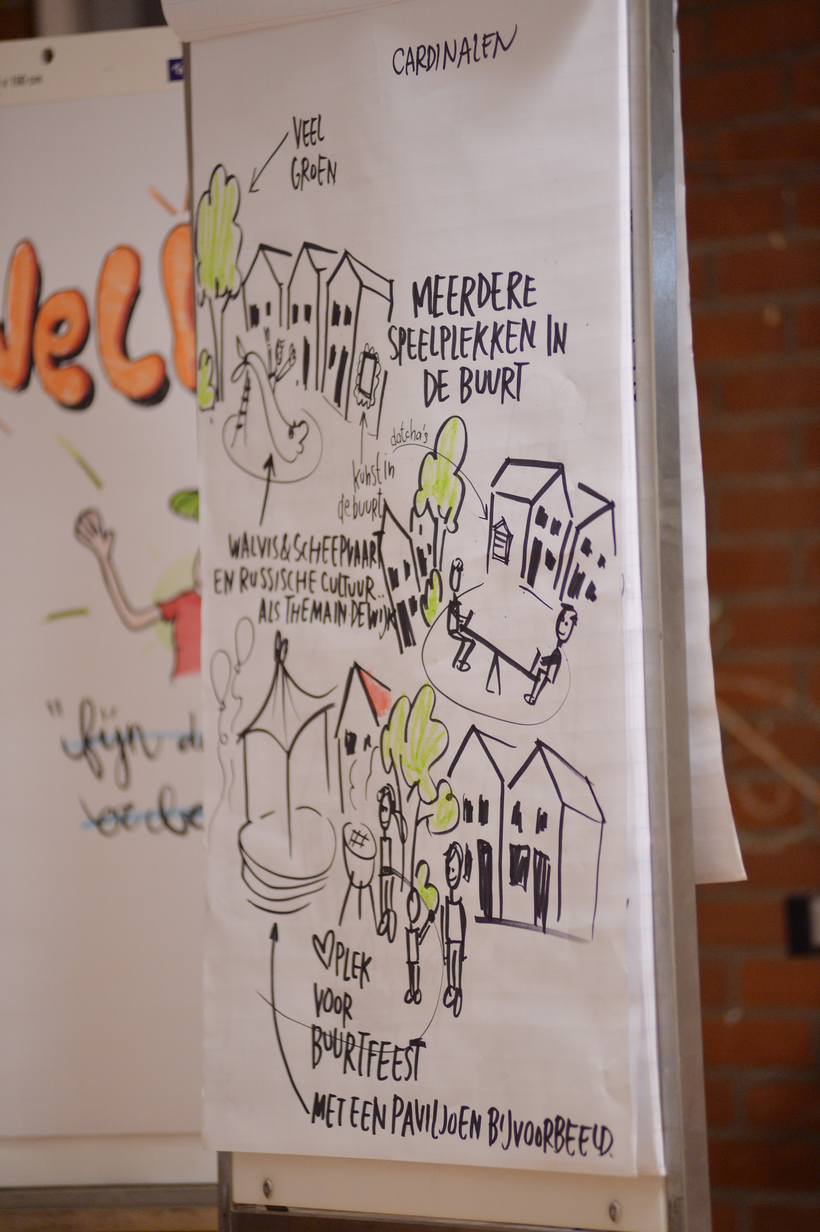 CARDINALEN
VEEL
GROEN
MEERDERE
SPEELPLEKKEN IN
DE BUURT
datcha's
kunst in
de buurt
WALVIS & SCHEEPVAART
EN RUSSISCHE CULTUUR..
ALS THEMA IN DE WIJK
PLEK
VOOR
BUURTFEEST
MET EEN PAVILJOEN BIJVOORBEELD.
"fijn